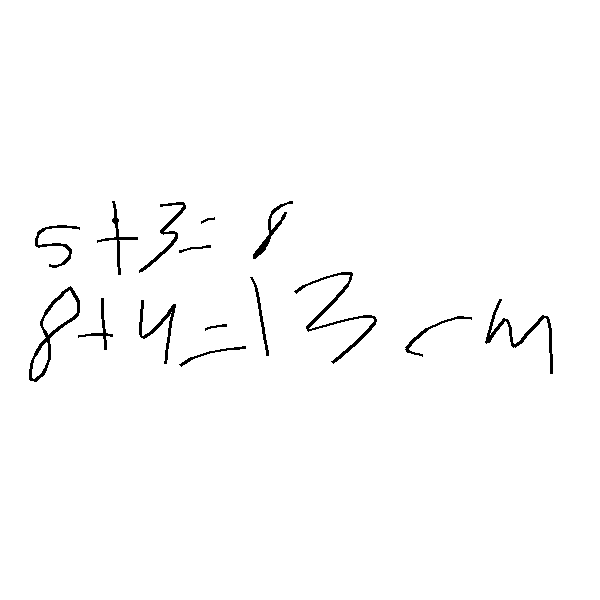 5+3=8
8+4=13 cm